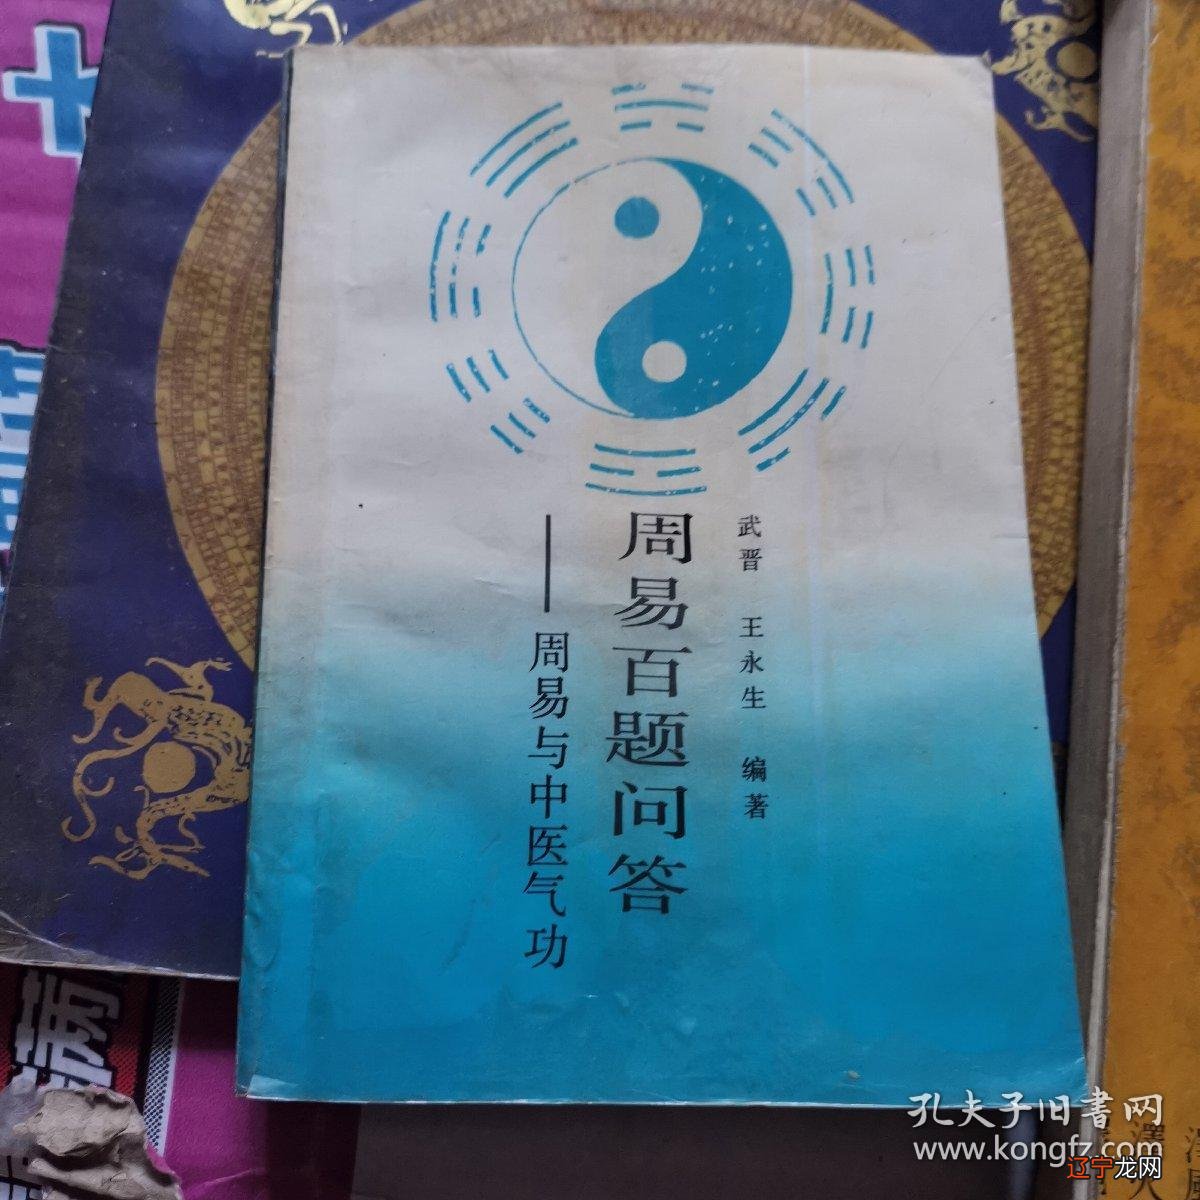 武晋 王永生 编著
周易百题问答
——周易与中医气功
孔夫子旧书网
www.kongfz.com
辽宁龙网